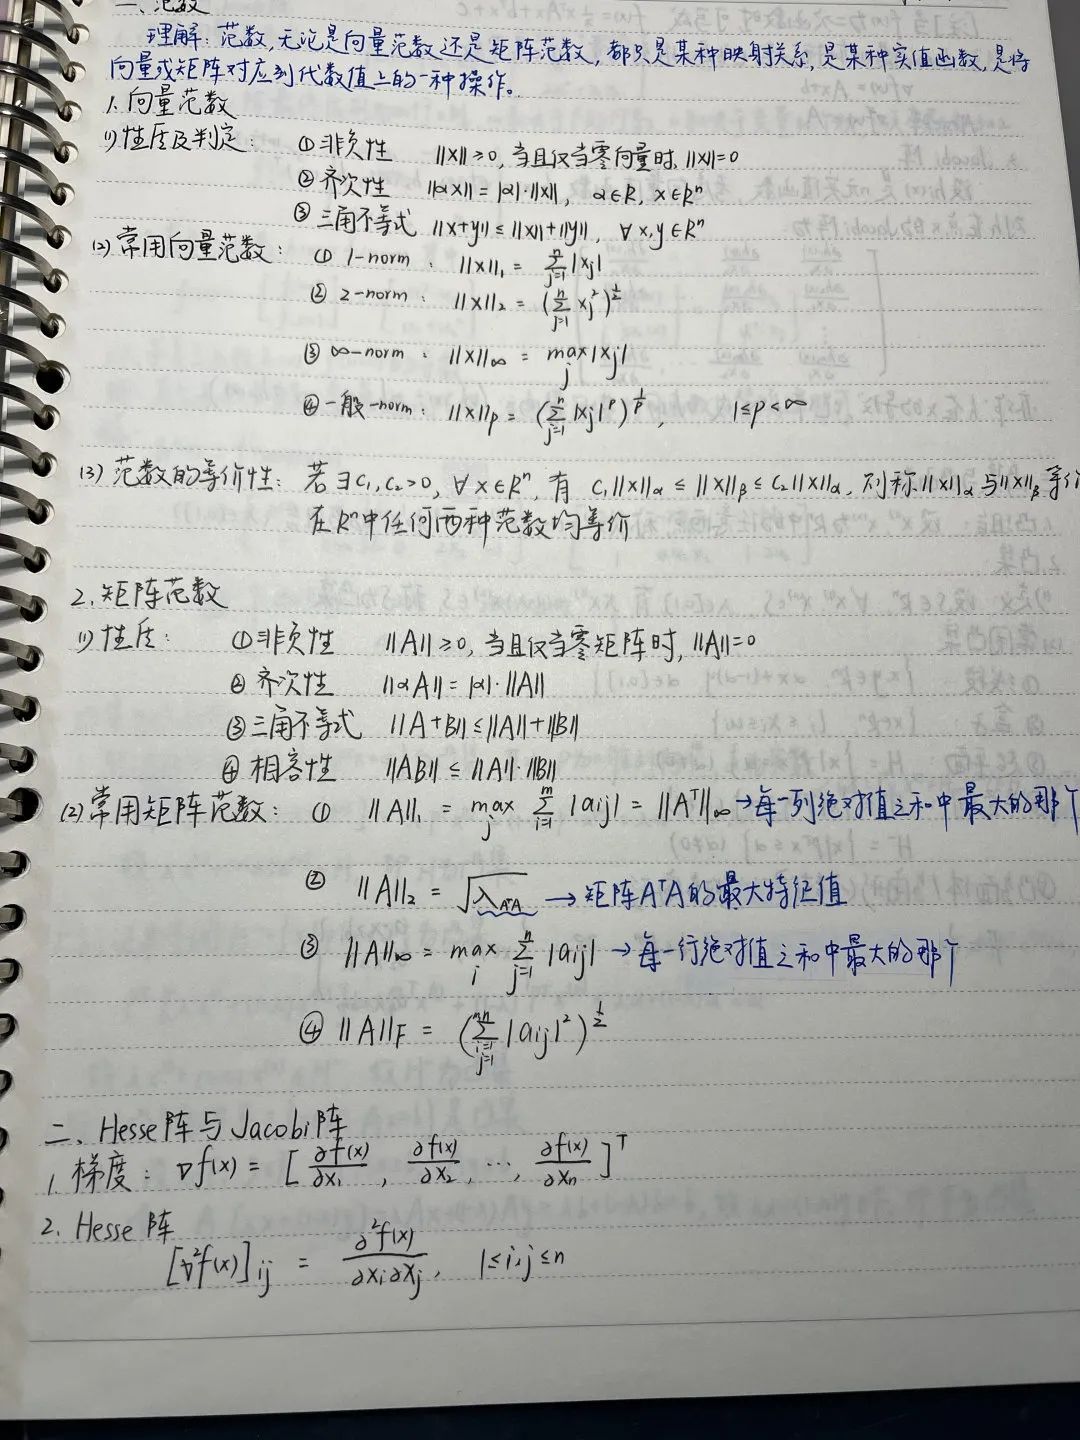 一、范数
理解：范数，无论是向量范数还是矩阵范数，都只是某种映射关系，是某种实值函数，是将
向量或矩阵对应到代数值上的一种操作。
1. 向量范数
(1) 性质及判定： ① 非负性 ||x||≥0, 当且仅当零向量时, ||x||=0
② 齐次性 ||αx||=|α|·||x||, α∈R, x∈Rⁿ
③ 三角不等式 ||x+y||≤||x||+||y||, ∀x,y∈Rⁿ
(2) 常用向量范数： ① 1-norm： ||x||₁ = ∑_{j=1}^{n}|xj|
② 2-norm： ||x||₂ = (∑_{j=1}^{n} xj²)^{1/2}
③ ∞-norm： ||x||∞ = max_j |xj|
④ 一般-norm： ||x||p = (∑_{j=1}^{n}|xj|^p)^{1/p}, 1≤p<∞
(3) 范数的等价性： 若∃c₁,c₂>0, ∀x∈Rⁿ, 有 c₁||x||α ≤ ||x||β ≤ c₂||x||α, 则称||x||α与||x||β等价
在Rⁿ中任何两种范数均等价
2. 矩阵范数
(1) 性质： ① 非负性 ||A||≥0, 当且仅当零矩阵时, ||A||=0
② 齐次性 ||αA||=|α|·||A||
③ 三角不等式 ||A+B||≤||A||+||B||
④ 相容性 ||AB||≤||A||·||B||
(2) 常用矩阵范数： ① ||A||₁ = max_j ∑_{i=1}^{m}|aij| = ||Aᵀ||∞ → 每一列绝对值之和中最大的那个
② ||A||₂ = √λ_{AᵀA} → 矩阵AᵀA的最大特征值
③ ||A||∞ = max_i ∑_{j=1}^{n}|aij| → 每一行绝对值之和中最大的那个
④ ||A||F = (∑_{i=1,j=1}^{m,n}|aij|²)^{1/2}
二、Hesse阵与Jacobi阵
1. 梯度： ∇f(x) = [∂f(x)/∂x₁, ∂f(x)/∂x₂, ⋯, ∂f(x)/∂xn]ᵀ
2. Hesse阵
[∇²f(x)]ij = ∂²f(x)/∂xi∂xj, 1≤i,j≤n